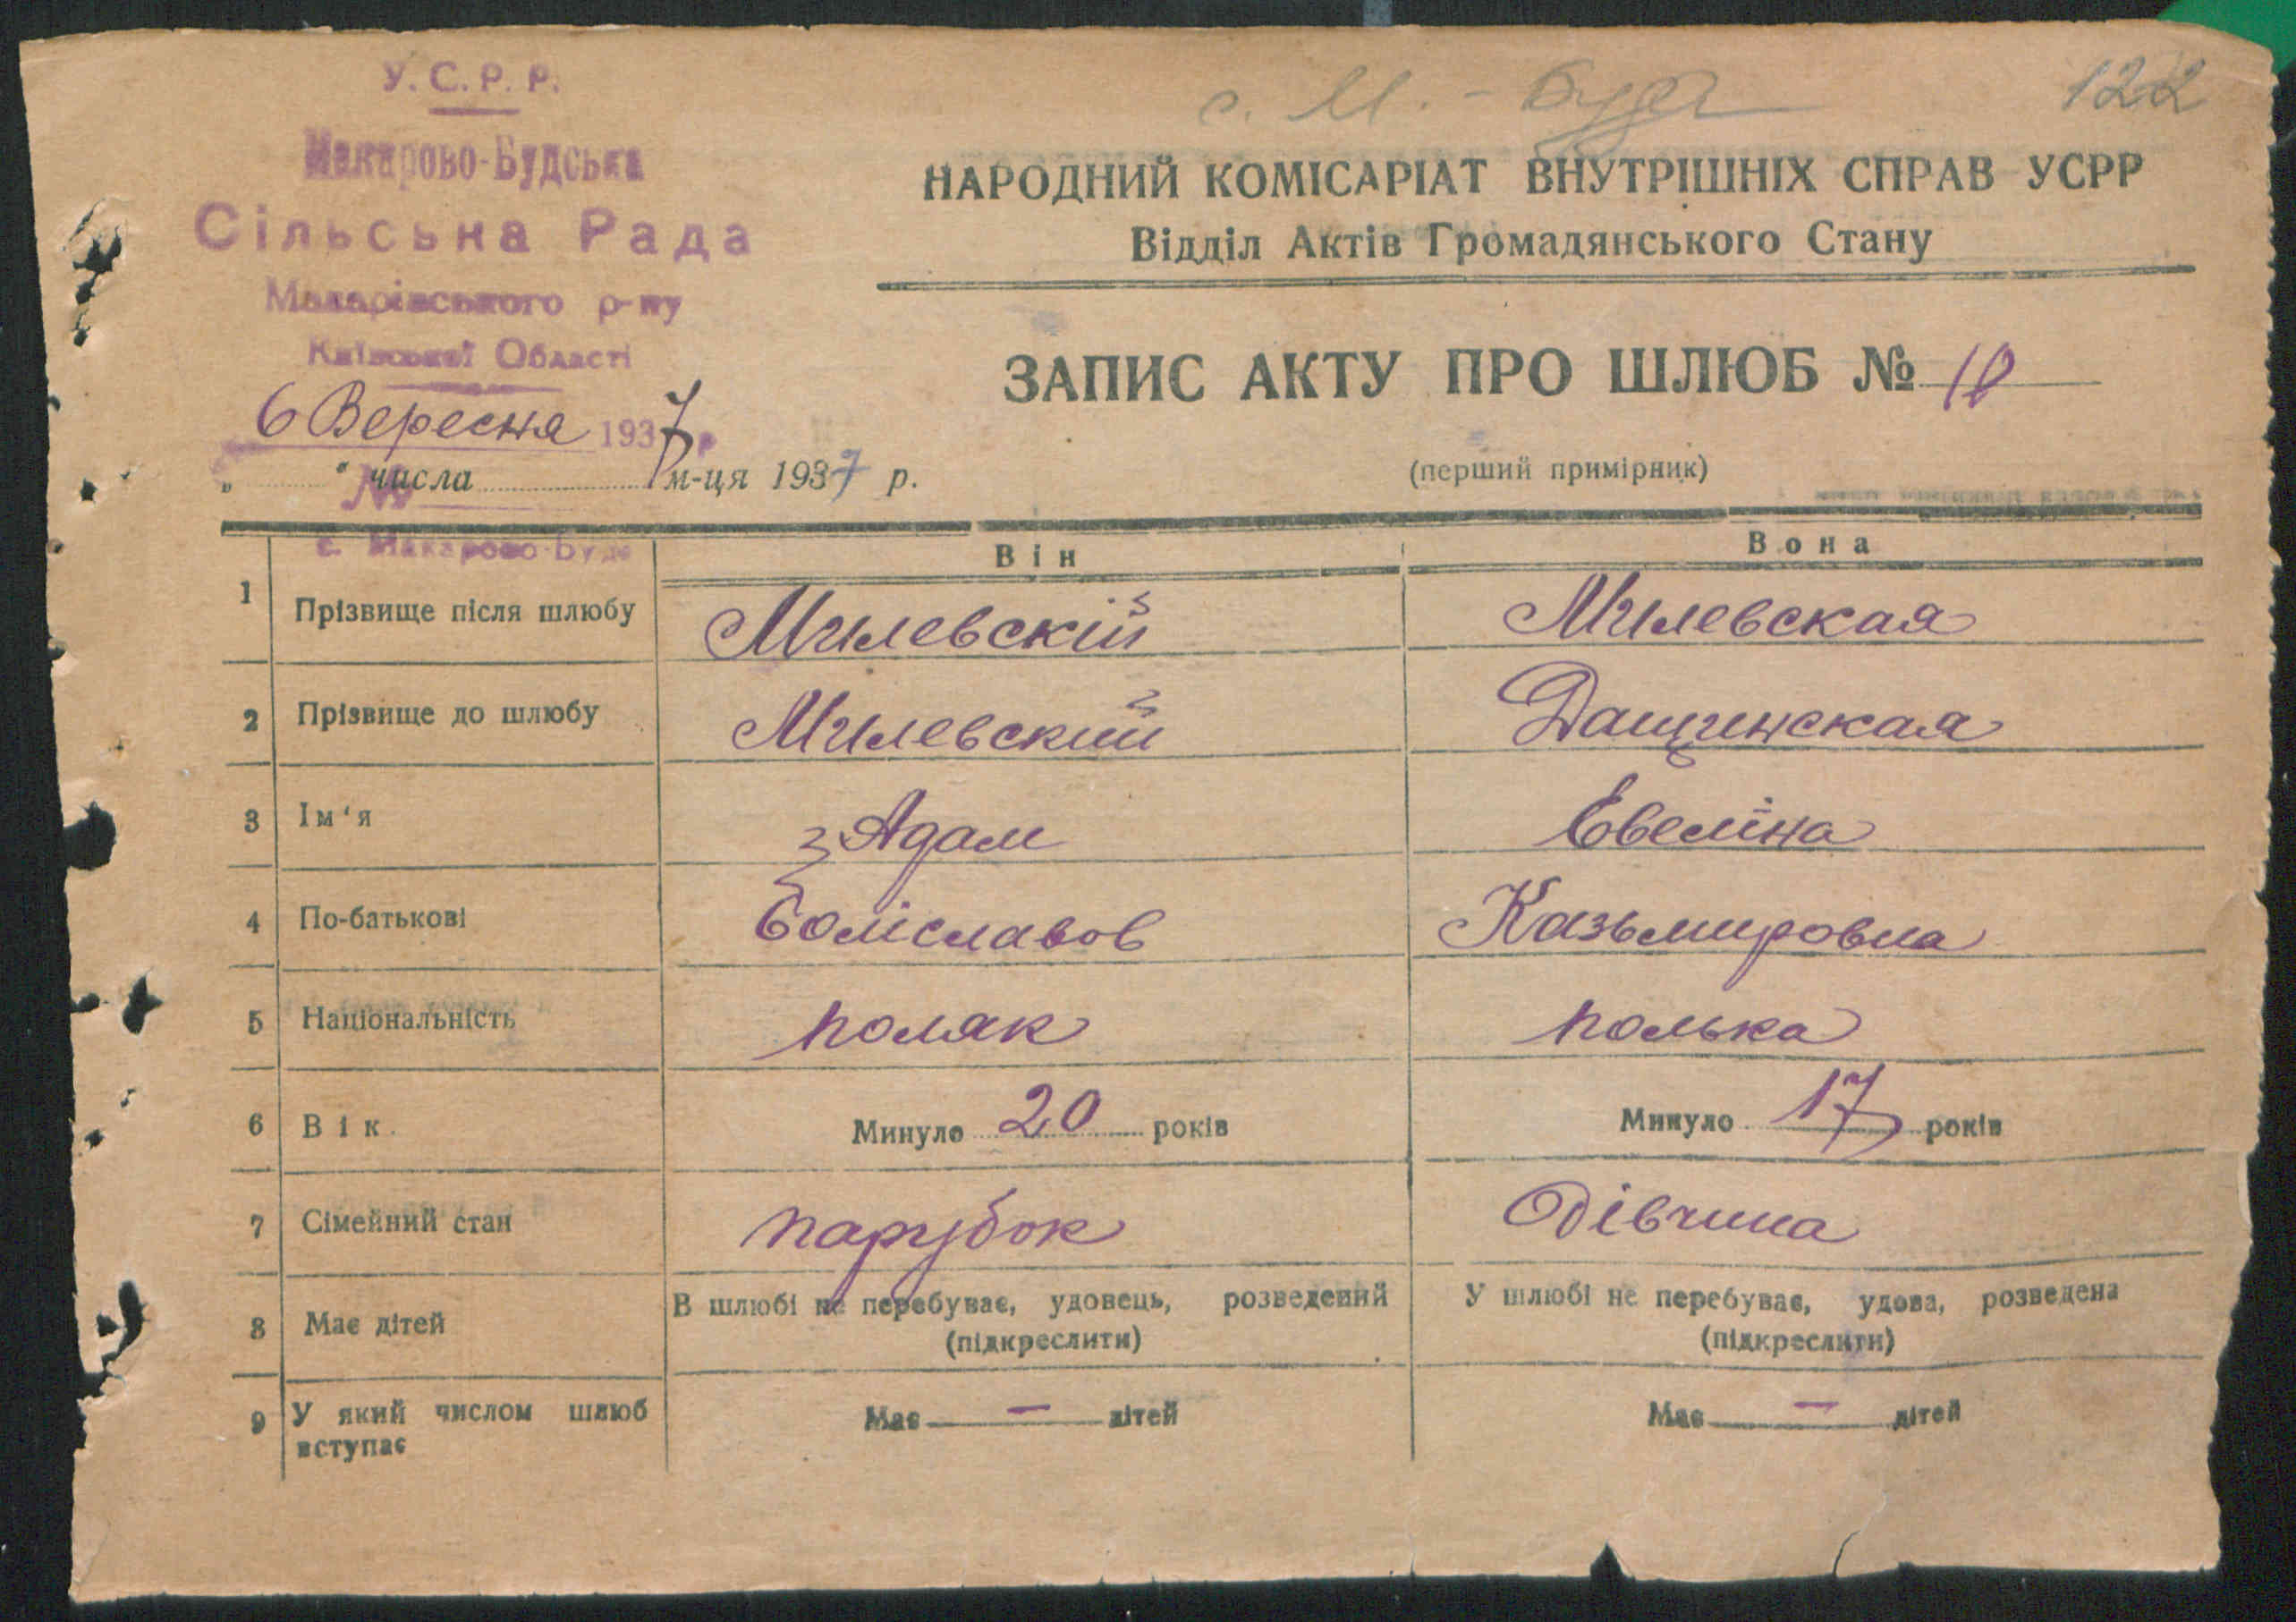 У.С.Р.Р.
с. М. - Буда
122
Макарово-Будська
Сільська Рада
Макарівського р-ну
Київської Області
6 Вересня 1937 р
№
с. Макарово-Буда
НАРОДНИЙ КОМІСАРІАТ ВНУТРІШНІХ СПРАВ УСРР
Відділ Актів Громадянського Стану
ЗАПИС АКТУ ПРО ШЛЮБ № 10
„ “ числа м-ця 1937 р.
(перший примірник)
Він Вона
1 Прізвище після шлюбу Милевскій Милевская
2 Прізвище до шлюбу Милевский Дащинская
3 Ім'я Адам Евеліна
4 По-батькові Боліславов Казьмировна
5 Національність поляк полька
6 Вік. Минуло 20 років Минуло 17 років
7 Сімейний стан парубок дівчина
8 Має дітей В шлюбі не перебуває, удовець, розведений У шлюбі не перебуває, удова, розведена
(підкреслити) (підкреслити)
9 У який числом шлюб Має — дітей Має — дітей
вступає